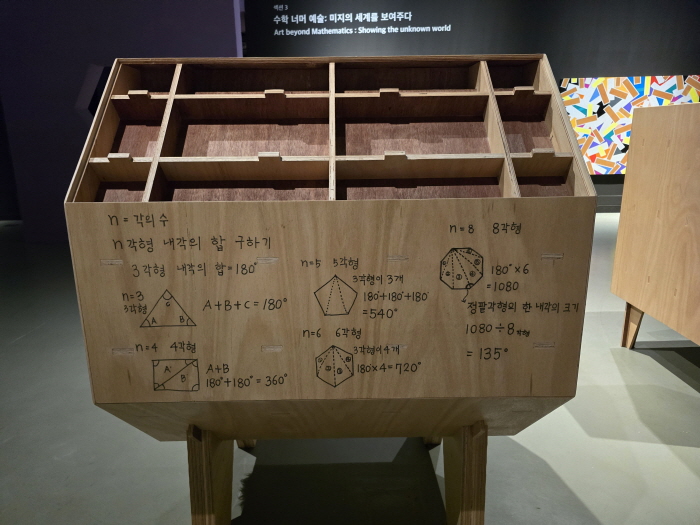 섹션 3
수학 너머 예술: 미지의 세계를 보여주다
Art beyond Mathematics : Showing the unknown world
n = 각의 수
n각형 내각의 합 구하기
3각형 내각의 합 = 180°
n=3
3각형
A
B
C
A+B+C = 180°
n=4 4각형
A
B
A+B
180°+180° = 360°
n=5 5각형
3각형이 3개
180°+180°+180°
=540°
n=6 6각형
3각형이 4개
180°×4=720°
n=8 8각형
180°×6
=1080
정팔각형의 한 내각의 크기
1080÷8
= 135°